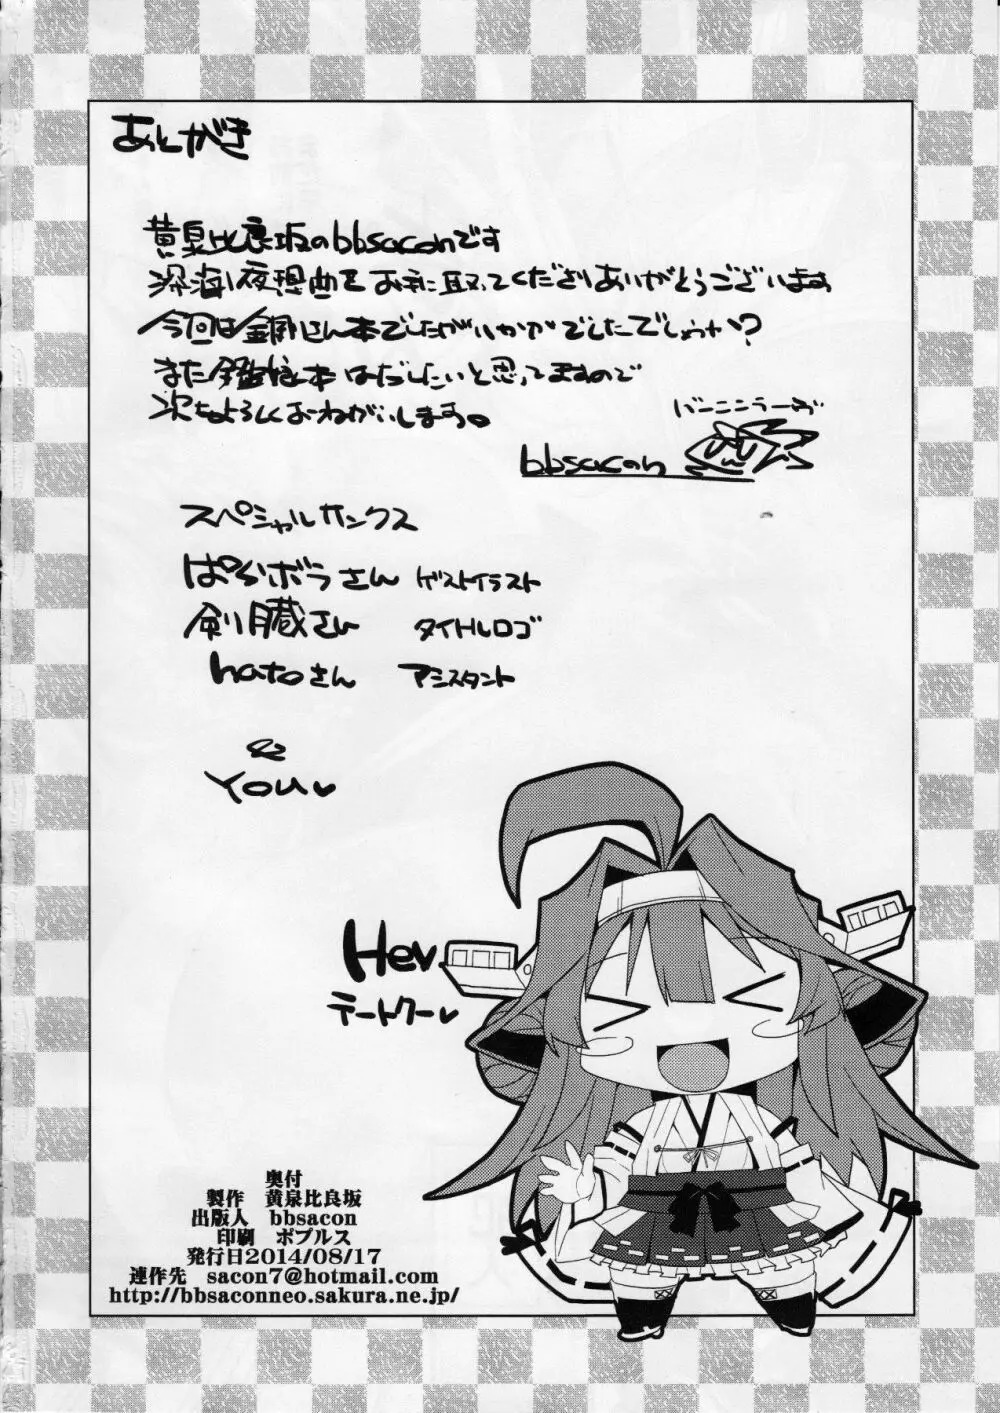 あとがき
黄泉比良坂のbbsaconです
深海夜想曲をお手に取ってくださりありがとうございます
今回は金剛さん本でしたがいかがでしたでしょうか?
また艦娘本はだしたいと思ってますので
次もよろしくおねがいします。
バーニンラーヴ
bbsacon
スペシャルサンクス
ぱらボラさん ゲストイラスト
剣月蔵さん タイトルロゴ
hatoさん アシスタント
&
YOU♥
Hey
テートクー♥
奥付
製作 黄泉比良坂
出版人 bbsacon
印刷 ポプルス
発行日2014/08/17
連作先 sacon7@hotmail.com
http://bbsaconneo.sakura.ne.jp/